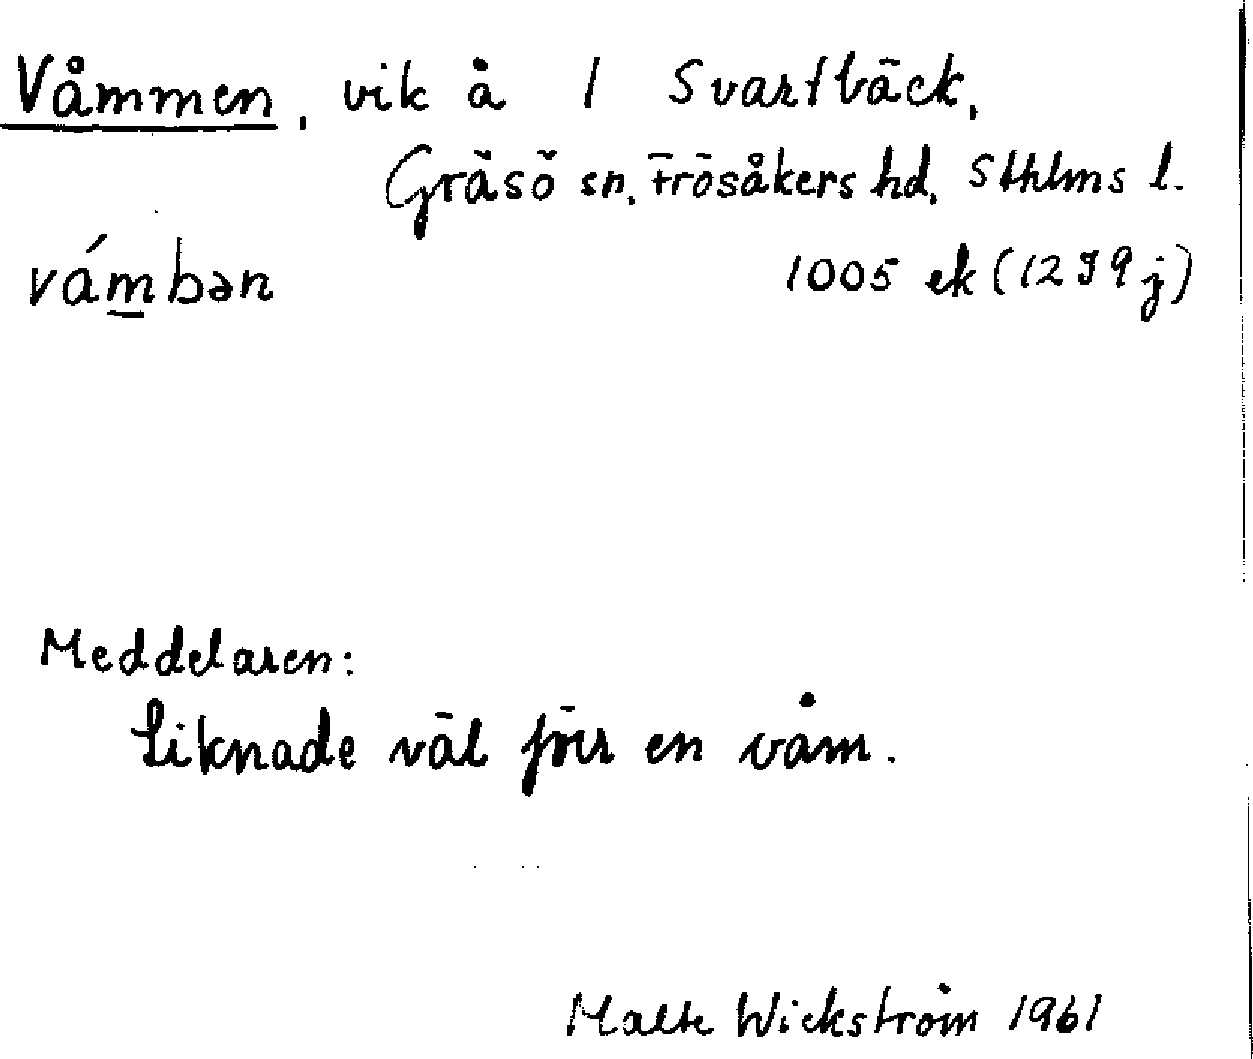 Våmmen, vik å 1 Svartbäck,
Gräsö sn, Frösåkers hd, Sthlms l.
vámbən 1005 ek (12I9j)
Meddelaren:
Liknade väl förr en våm.
Malte Wickström 1961